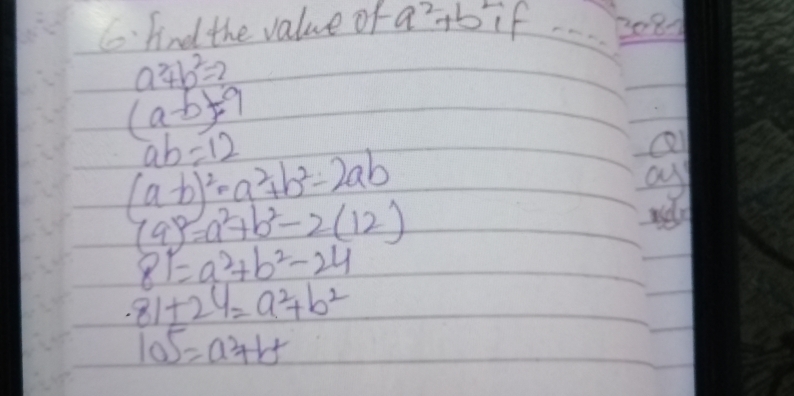 6. Find the value of a²+b² if ....
a²+b²=?
(a-b)=9
ab=12
(a-b)²=a²+b²-2ab
(9)²=a²+b²-2(12)
81=a²+b²-24
81+24=a²+b²
105=a²+b²